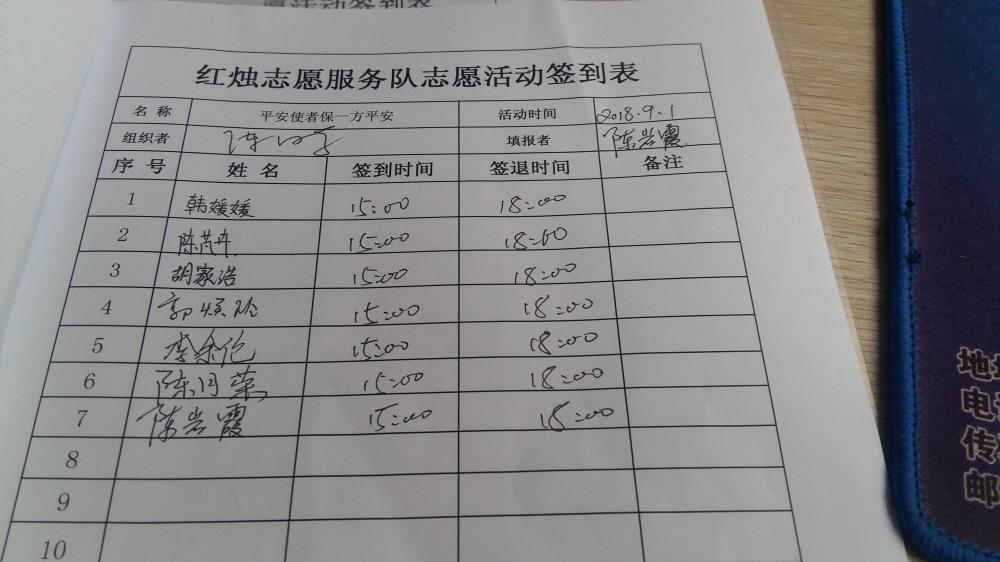 愿活动签到表
红烛志愿服务队志愿活动签到表
名 称 平安使者保一方平安 活动时间 2018.9.1
组织者 陈 填报者 陈岩霞
序 号 姓 名 签到时间 签退时间 备注
1 韩媛媛 15:00 18:00
2 陈芮冉 15:00 18:00
3 胡家浩 15:00 18:00
4 郭 15:00 18:00
5 李余伦 15:00 18:00
6 陈月荣 15:00 18:00
7 陈岩霞 15:00 18:00
8
9
10
地
电
传
邮